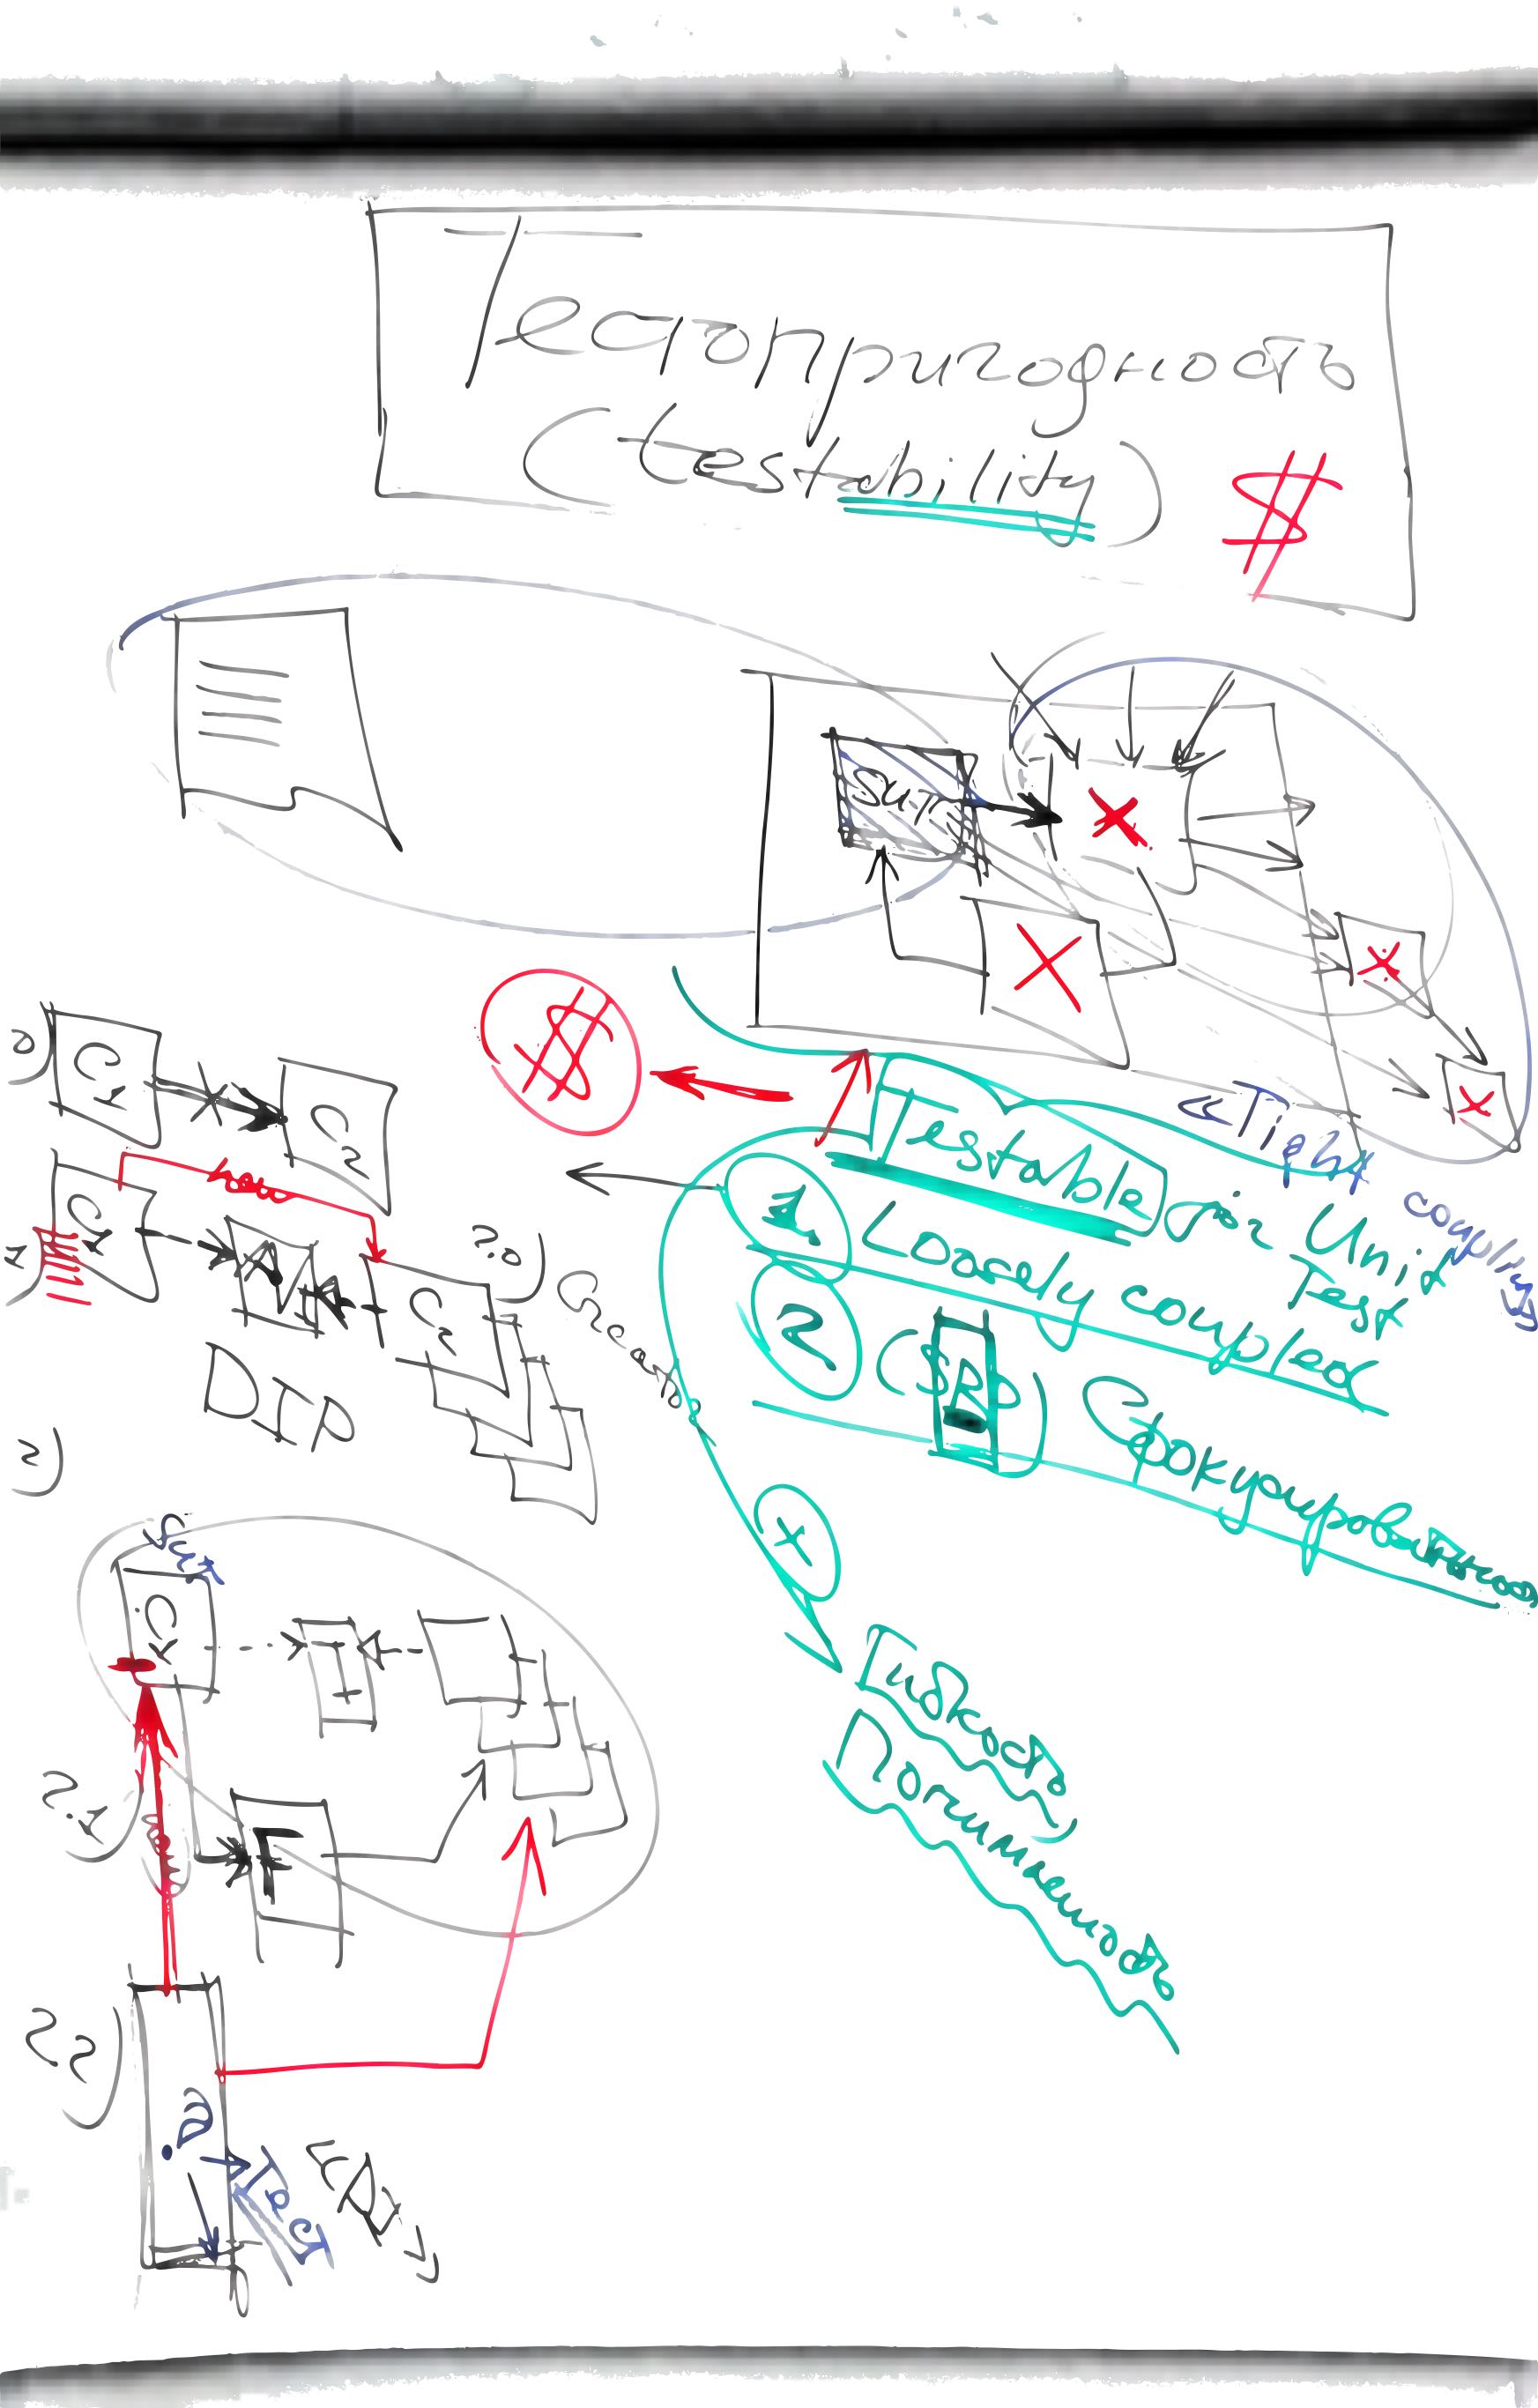 Тестопригодность
(testability) $
SUT
$
«Tight coupling
Testable for Unit Test
1 Loosely coupled
2 (SRP) Сфокусированность
+
Гибкость
Понятность
0)
C1
C2
1)
C1
C2
DIP
2.0)
2)
SUT
C1
2.1)
F
2.2)
Тест